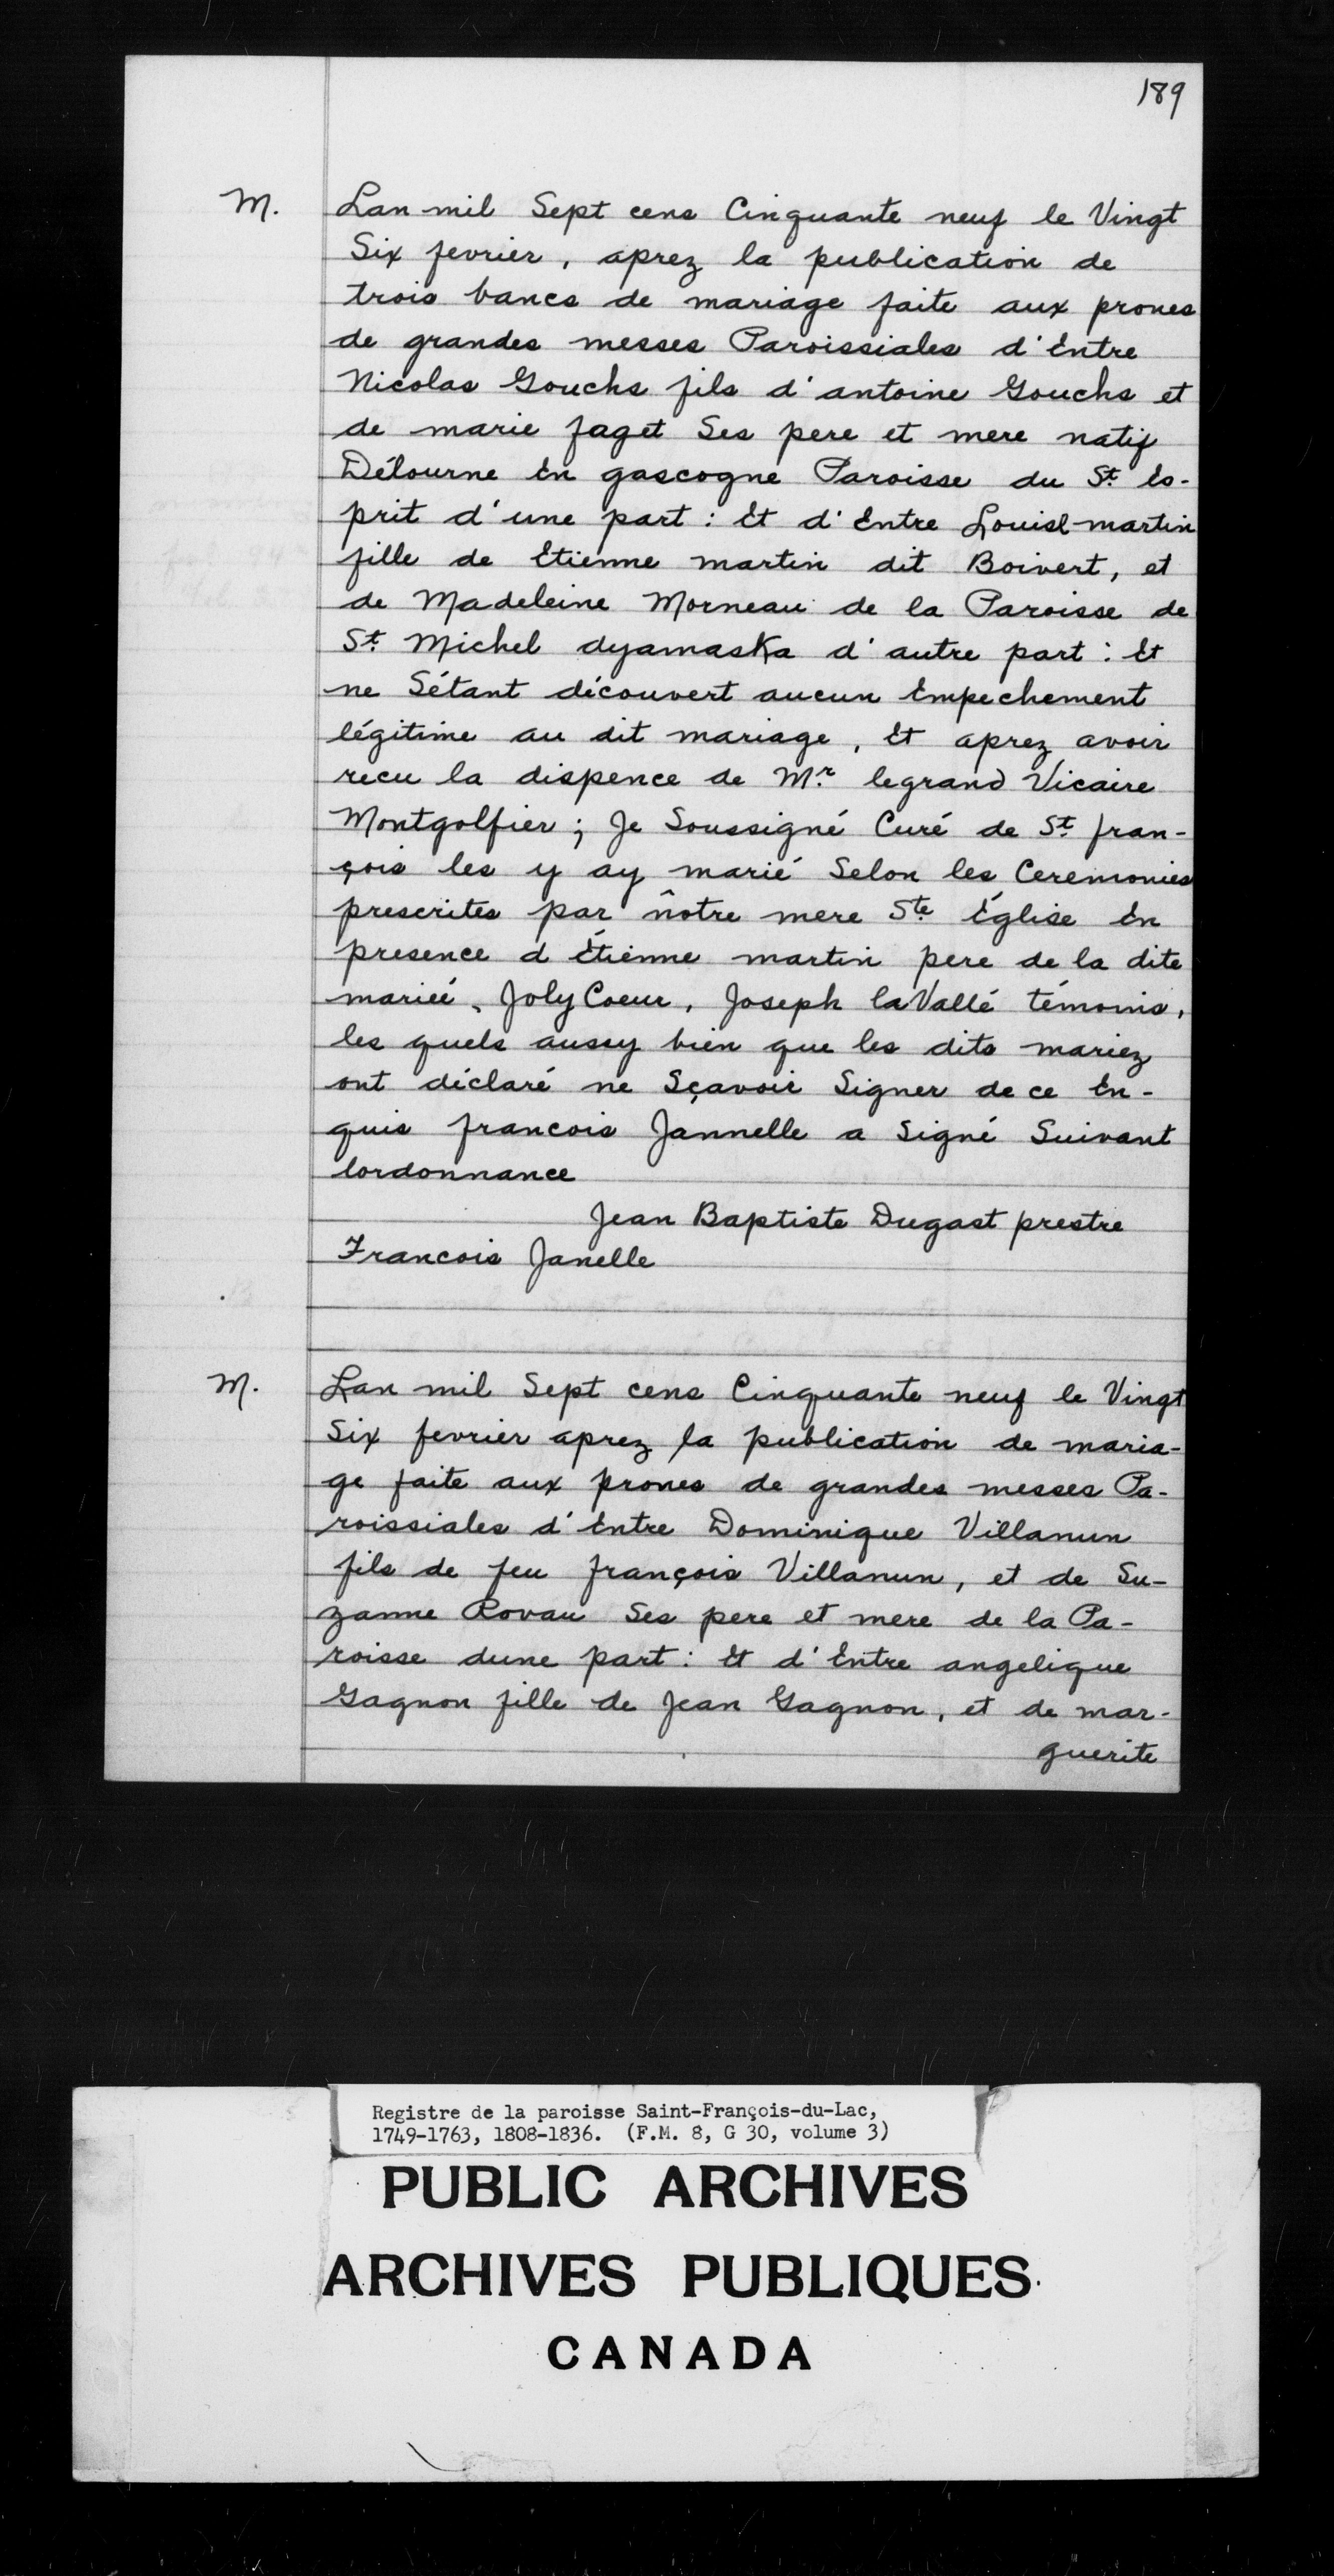 189
M. Lan mil Sept cens Cinquante neuf le Vingt
Six fevrier, aprez la publication de
trois bancs de mariage faite aux prones
de grandes messes Paroissiales d'Entre
Nicolas Gouchs fils d'antoine Gouchs et
de marie faget Ses pere et mere natif
Délourne En gascogne Paroisse du St. Es-
prit d'une part : Et d'Entre Louise martin
fille de Etienne martin dit Boivert, et
de Madeleine Morneau de la Paroisse de
St. Michel dyamaska d'autre part : Et
ne Sétant découvert aucun Empechement
légitime au dit mariage, Et aprez avoir
recu la dispence de Mr. legrand Vicaire
Montgolfier ; Je Soussigné Curé de St. fran-
çois les y ay marié Selon les Ceremonies
prescrites par nôtre mere Ste Église En
presence d Étienne martin pere de la dite
mariéé, Joly Coeur, Joseph laVallé témoins,
les quels aussy bien que les dits mariez
ont déclaré ne Sçavoir Signer de ce En-
quis francois Jannelle a Signé Suivant
lordonnance
Jean Baptiste Dugast prestre
Francois Janelle
M. Lan mil Sept cens Cinquante neuf le Vingt
Six fevrier aprez la publication de maria-
ge faite aux prones de grandes messes Pa-
roissiales d'Entre Dominique Villanun
fils de feu françois Villanun, et de Su-
zanne Rovau Ses pere et mere de la Pa-
roisse dune part : Et d'Entre angelique
Gagnon fille de Jean Gagnon, et de mar-
guerite
Registre de la paroisse Saint-François-du-Lac,
1749-1763, 1808-1836. (F.M. 8, G 30, volume 3)
PUBLIC ARCHIVES
ARCHIVES PUBLIQUES
CANADA